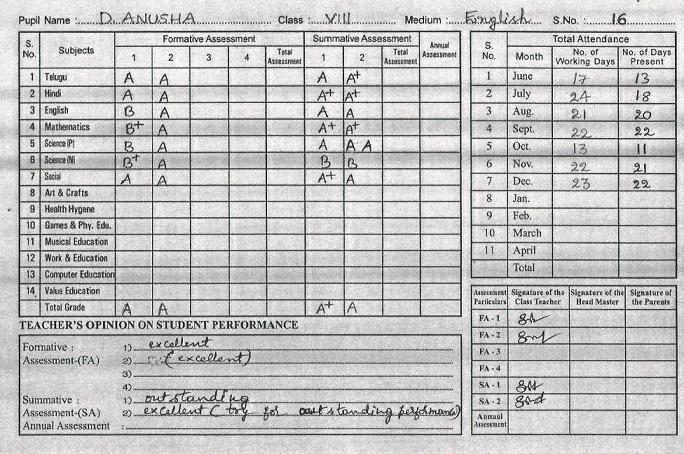 Pupil Name : D. ANUSHA Class : VIII Medium : English S.No. : 16
S. No. Subjects Formative Assessment Summative Assessment Annual Assessment
1 2 3 4 Total Assessment 1 2 Total Assessment
1 Telugu A A A A+
2 Hindi A A A+ A+
3 English B A A A
4 Mathematics B+ A A+ A+
5 Science (P) B A A A A
6 Science (N) B+ A B B
7 Social A A A+ A
8 Art & Crafts
9 Health Hygene
10 Games & Phy. Edu.
11 Musical Education
12 Work & Education
13 Computer Education
14 Value Education
Total Grade A A A+ A
TEACHER'S OPINION ON STUDENT PERFORMANCE
Formative : 1) excellent
Assessment-(FA) 2) (excellent)
3)
4)
Summative : 1) outstanding
Assessment-(SA) 2) excellent (try for outstanding performance)
Annual Assessment :
S. No. Month Total Attendance
No. of Working Days No. of Days Present
1 June 17 13
2 July 24 18
3 Aug. 21 20
4 Sept. 22 22
5 Oct. 13 11
6 Nov. 22 21
7 Dec. 23 22
8 Jan.
9 Feb.
10 March
11 April
Total
Assessment Particulars Signature of the Class Teacher Signature of the Head Master Signature of the Parents
FA - 1
FA - 2
FA - 3
FA - 4
SA - 1
SA - 2
Annual Assessment